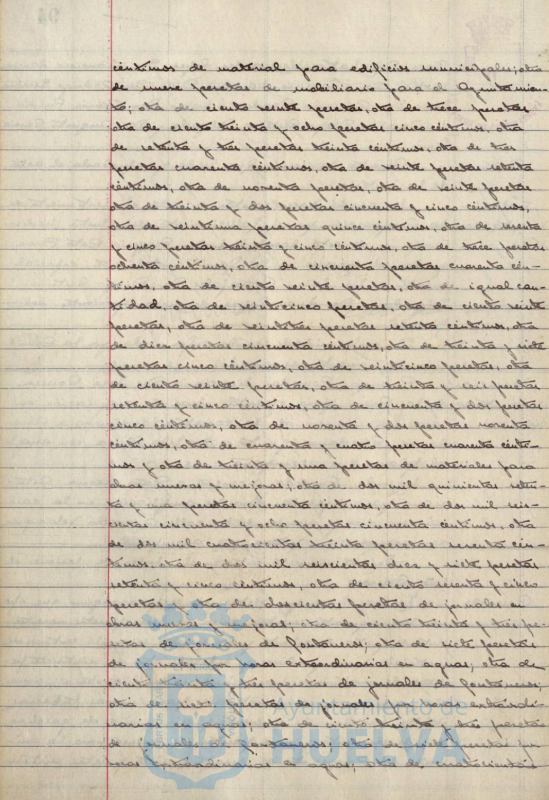 céntimos de material para edificios municipales; otra
de nueve pesetas de mobiliario para el Ayuntamien-
to; otra de ciento veinte pesetas, otra de trece pesetas
otra de ciento treinta y ocho pesetas cinco céntimos, otra
de setenta y tres pesetas treinta céntimos, otra de tres
pesetas cuarenta céntimos, otra de veinte pesetas setenta
céntimos, otra de noventa pesetas, otra de veinte pesetas
otra de treinta y dos pesetas cincuenta y cinco céntimos,
otra de veintiuna pesetas quince céntimos, otra de
y cinco pesetas treinta y cinco céntimos, otra de trece pesetas
ochenta céntimos, otra de cincuenta pesetas cuarenta cén-
timos, otra de ciento veinte pesetas, otra de igual can-
tidad, otra de veinticinco pesetas, otra de ciento veinte
pesetas, otra de veintitrés pesetas setenta céntimos, otra
de diez pesetas cincuenta céntimos, otra de treinta y siete
pesetas cinco céntimos, otra de veinticinco pesetas, otra
de ciento veinte pesetas, otra de treinta y seis pesetas
setenta y cinco céntimos, otra de cincuenta y dos pesetas
cinco céntimos, otra de noventa y dos pesetas noventa
céntimos, otra de cuarenta y cuatro pesetas cuarenta cénti-
mos y otra de treinta y una pesetas de materiales para
obras nuevas y mejoras; otra de dos mil quinientas seten-
ta y una pesetas cincuenta céntimos, otra de dos mil seis-
cientas cincuenta y ocho pesetas cincuenta céntimos, otra
de dos mil cuatrocientas treinta pesetas sesenta cén-
timos, otra de dos mil seiscientas diez y siete pesetas
setenta y cinco céntimos, otra de ciento sesenta y cinco
pesetas y otra de doscientas pesetas de jornales en
obras nuevas y mejoras; otra de ciento treinta y tres pe-
setas de jornales de fontaneros; otra de siete pesetas
de jornales por horas extraordinarias en aguas; otra de
ciento treinta y tres pesetas de jornales de fontaneros;
otra de siete pesetas de jornales por horas extraordi-
narias en aguas; otra de ciento treinta y tres pesetas
de jornales de fontaneros; otra de siete pesetas por
horas extraordinarias en aguas; otra de cuatrocientas
Ayuntamiento de
HUELVA